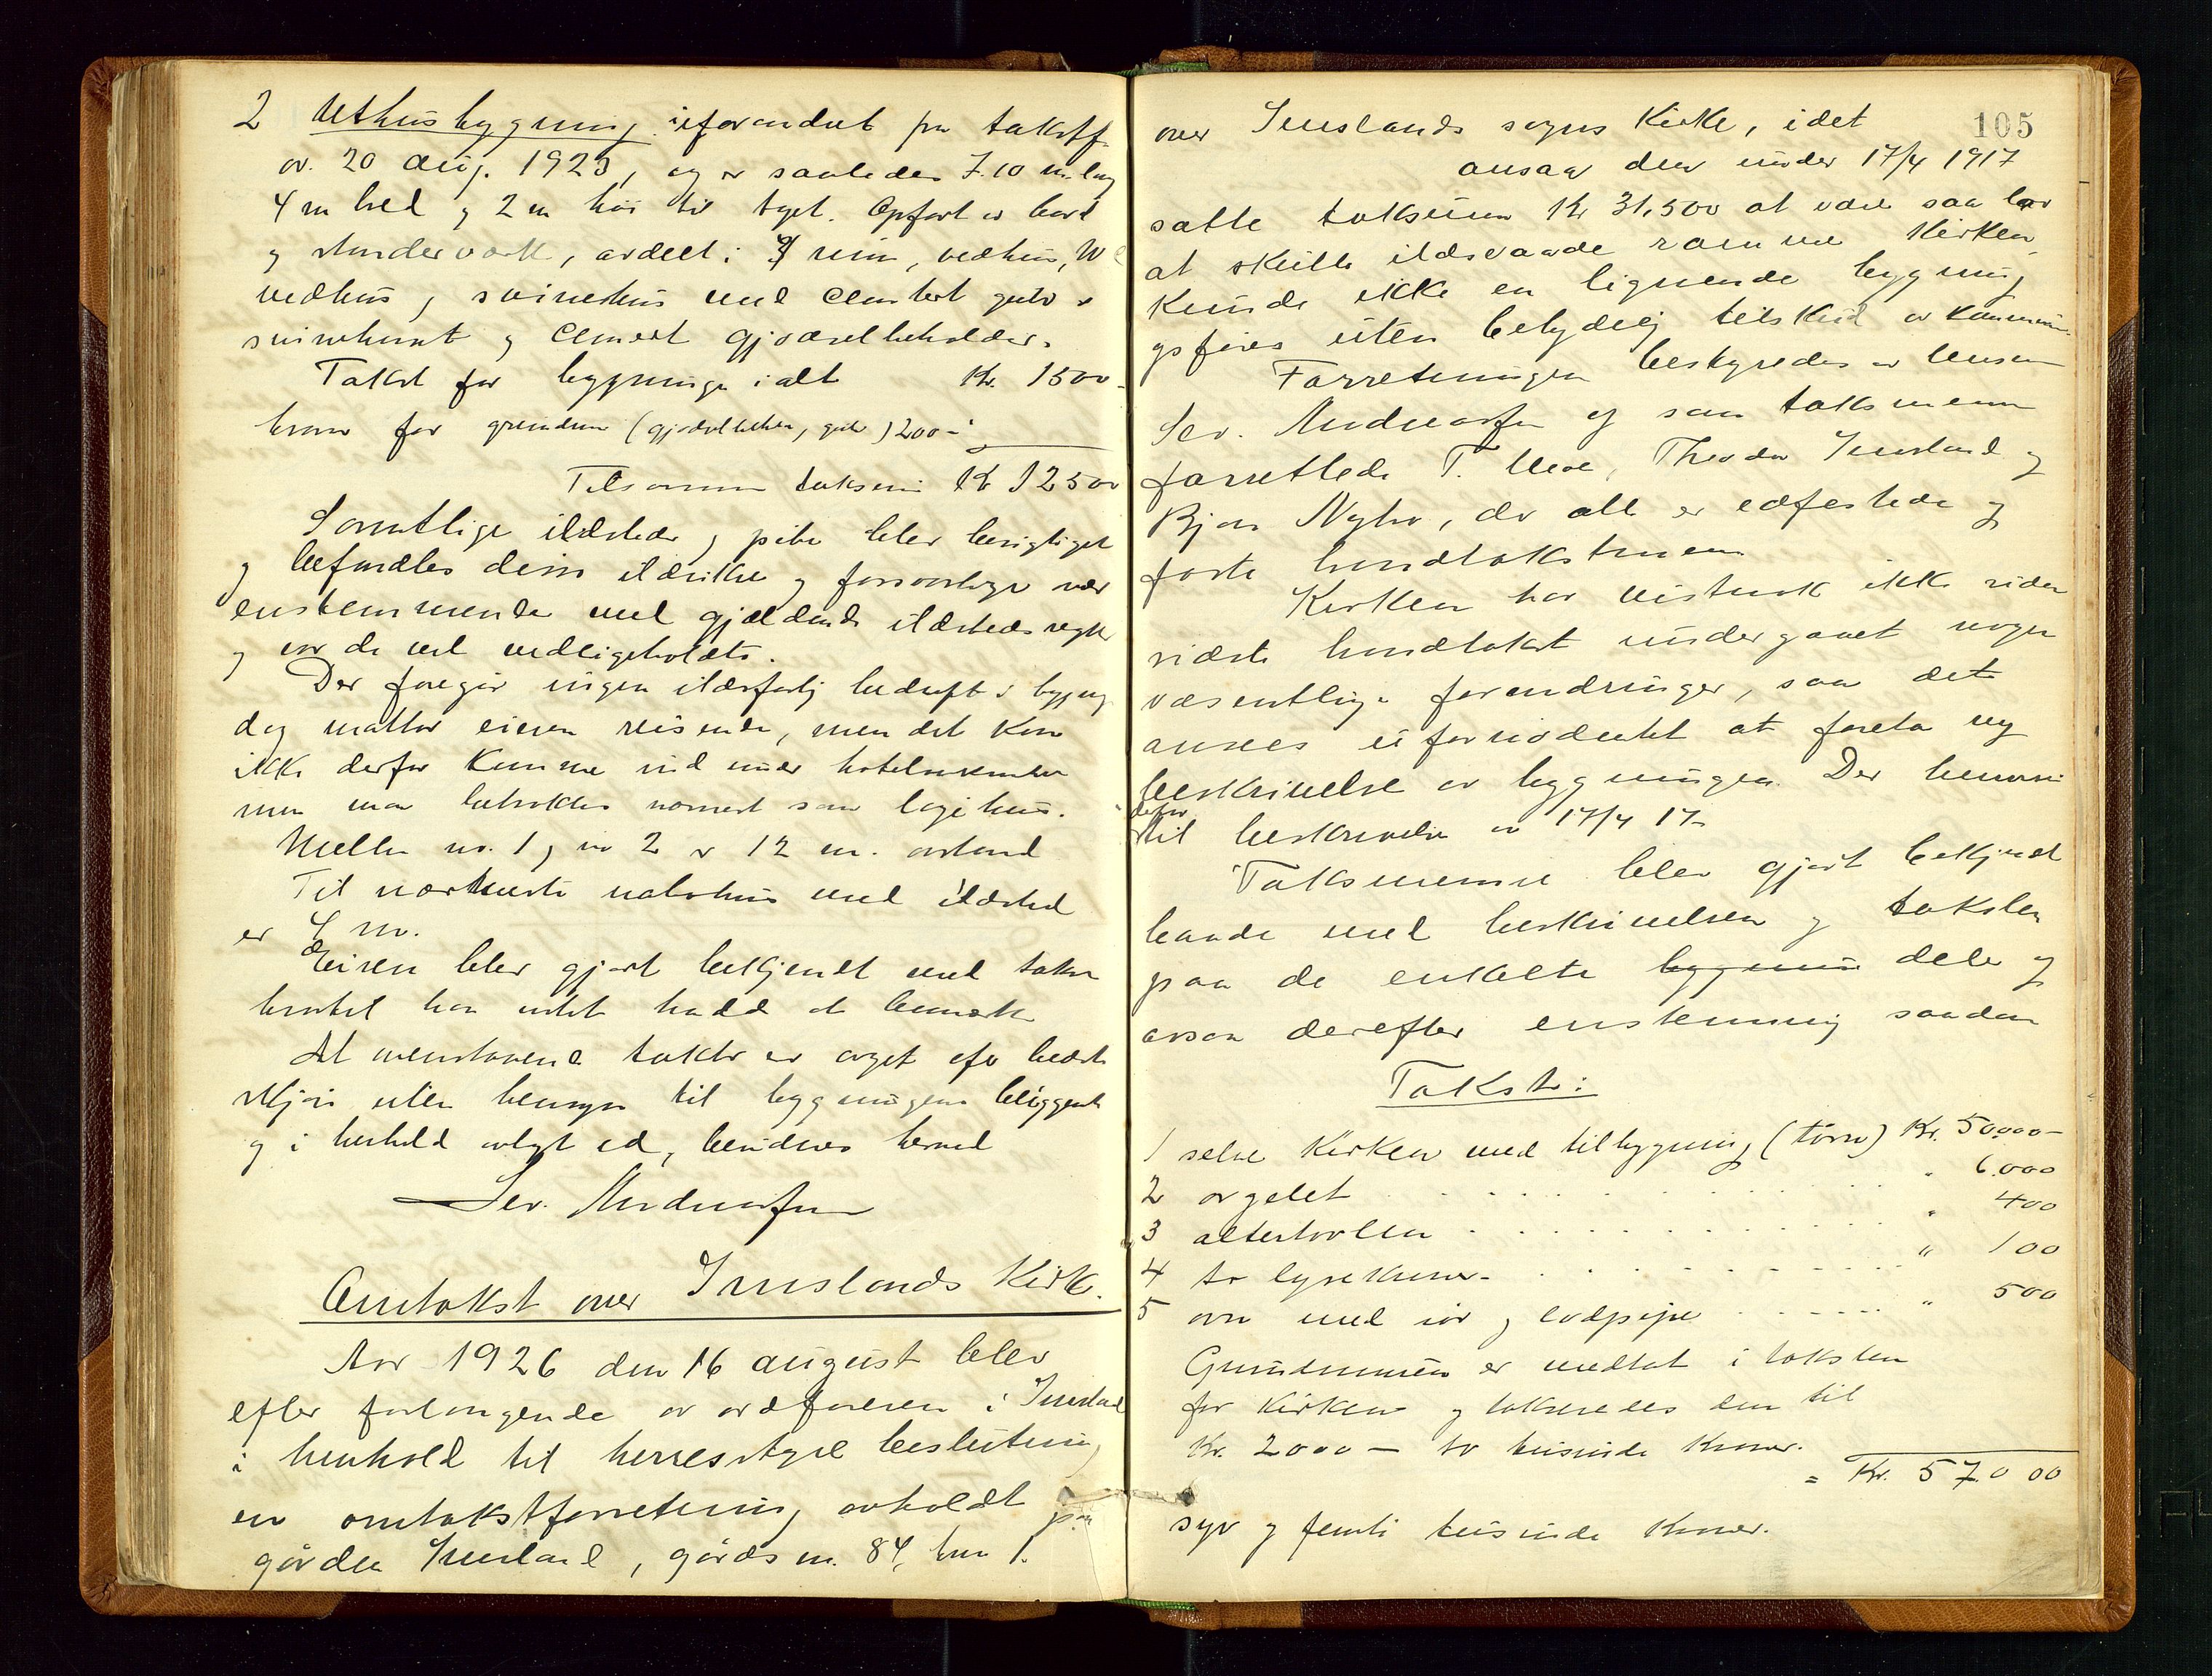 2 Uthusbygning uforandret fra takstf.
av. 20 aug. 1923, og er saaledes 7.10 m. lang
4 m bred og 2 m høi til taget. Opført av bord
og stenderverk, avdelt i 3 rum, vedhus, W C
vedhus og svinehus med cementert gulv i
svinehuset og cement gjødselbeholder.
Takst for bygninge ialt Kr. 1500-
hvorav for grundmur (gjødselbeholder, gulv) 200-
Tilsammen taksum Kr 12500
Samtlige ildsteder og piber blev besigtiget
og befandtes disse ildsikre og forsvarlige over
enstemmende med gjældende ildstedsregler
og var de vel vedligeholdte.
Der foregår ingen ildsfarlig bedrift i bygning
dog mottar eieren reisende, men det kan
ikke derfor komme ind under hotelvirksomhet
men maa betraktes nærmest som logihus.
Mellem nr. 1 og nr 2 er 12 m. avstand
Til nærmeste nabohus med ildsted
er 4 m.
Eieren blev gjort bekjendt med takst
hvortil han intet hadde at bemerke
At ovenstaaende takst er avgit efter bedste
skjøn uten hensyn til bygningens beliggenhet
og i henhold avlagt ed, bevidnes herved
Sev. Andreassen
Omtakst over Imslands Kirke.
Aar 1926 den 16 august blev
efter forlangende av ordføreren i Imsland
i henhold til herredsstyrets beslutning
en omtakstforretning avholdt paa
gården Imsland, gårdsnr. 84, bnr 1.
105
over Imslands sogns Kirke, idet
ansaa den under 17/4 1917
satte taksum Kr 31.500 at være saa lav
at skulle ildsvaade ramme Kirken
kunde ikke en lignende bygning
opføres uten betydelig tilskud av kommunen.
Forretningen bestyredes av lensm
Sev. Andreassen og som taksmenn
forrettede T. Ueve, Theodor Imsland og
Bjarne Nybø, der alle er edfestede og
faste brandtakstmenn
Kirken har vistnok ikke siden
sidste brandtakst undergaaet nogen
væsentlige forandringer, saa det
ansees ufornødent at foreta ny
beskrivelse av bygningen. Der henvises
derfor
til beskrivelse av 17/4 17-
Taksmennene blev gjort bekjendt
baade med beskrivelsen og taksten
paa de enkelte bygnin dele og
avsaa derefter enstemmig saadan
Takst:
1 selve Kirken med tilbygning (tårn) Kr. 50.000-
2 orgelet " 6.000
3 altertavlen " 400
4 to lysekroner " 100
5 ovn med rør og lodpipe " 500
Grundmuren er medtat i taksten
for Kirken og takseredes den til
Kr. 2000- to tusinde Kroner.
= Kr. 57000
syv og femti tusinde Kroner.